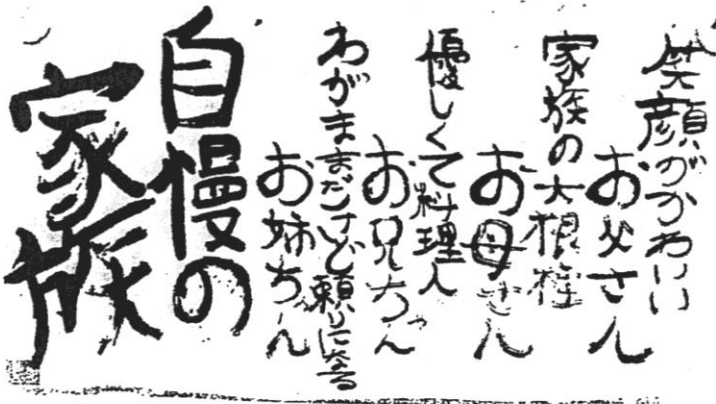 笑顔がかわいい
お父さん
家族の大根柱
お母さん
優しくて料理人
お兄ちゃん
わがままだけど頼りになる
お姉ちゃん
自慢の
家族